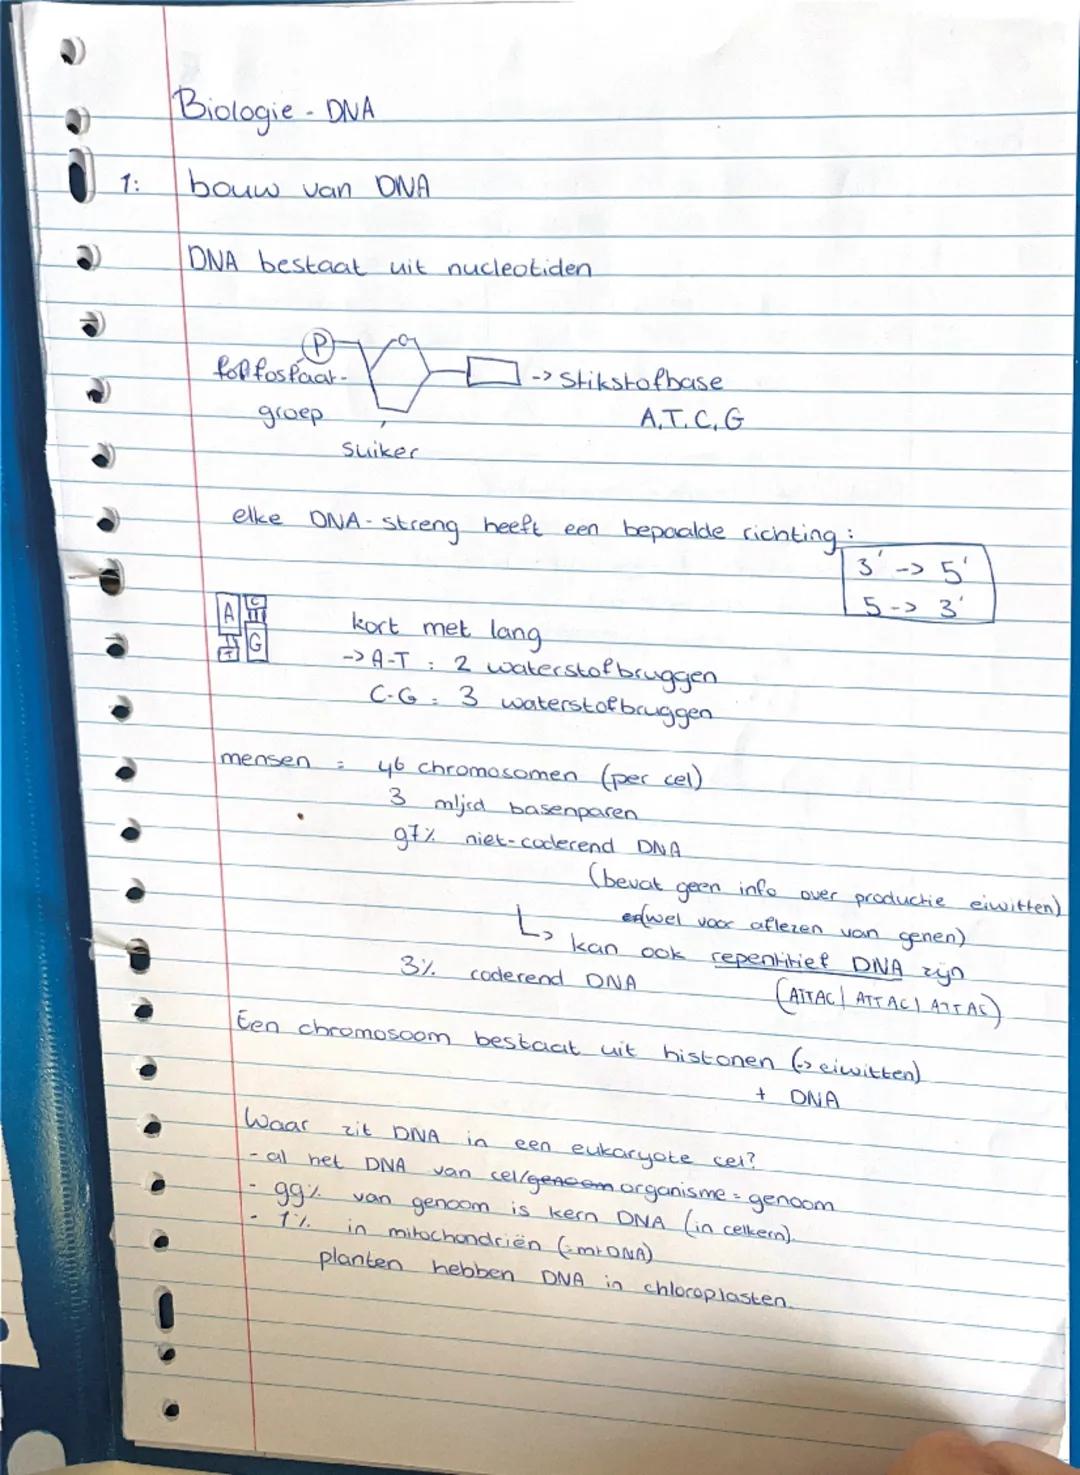 Biologie - DNA
1: bouw van DNA
DNA bestaat uit nucleotiden
P
fosfaat-
groep
suiker
-> Stikstofbase
A,T,C,G
elke DNA-streng heeft een bepaalde richting:
3' -> 5'
5 -> 3'
A C
T G
kort met lang
-> A-T : 2 waterstofbruggen
C-G : 3 waterstofbruggen
mensen = 46 chromosomen (per cel)
3 mljrd basenparen
97% niet-coderend DNA
(bevat geen info over productie eiwitten)
(wel voor aflezen van genen)
kan ook repentitief DNA zijn
(ATTAC| ATTAC| ATTAC)
3% coderend DNA
Een chromosoom bestaat uit histonen (-> eiwitten)
+ DNA
Waar zit DNA in een eukaryote cel?
- al het DNA van cel/genoom organisme = genoom
- 99% van genoom is kern DNA (in celkern)
- 1% in mitochondriën (=mtDNA)
planten hebben DNA in chloroplasten